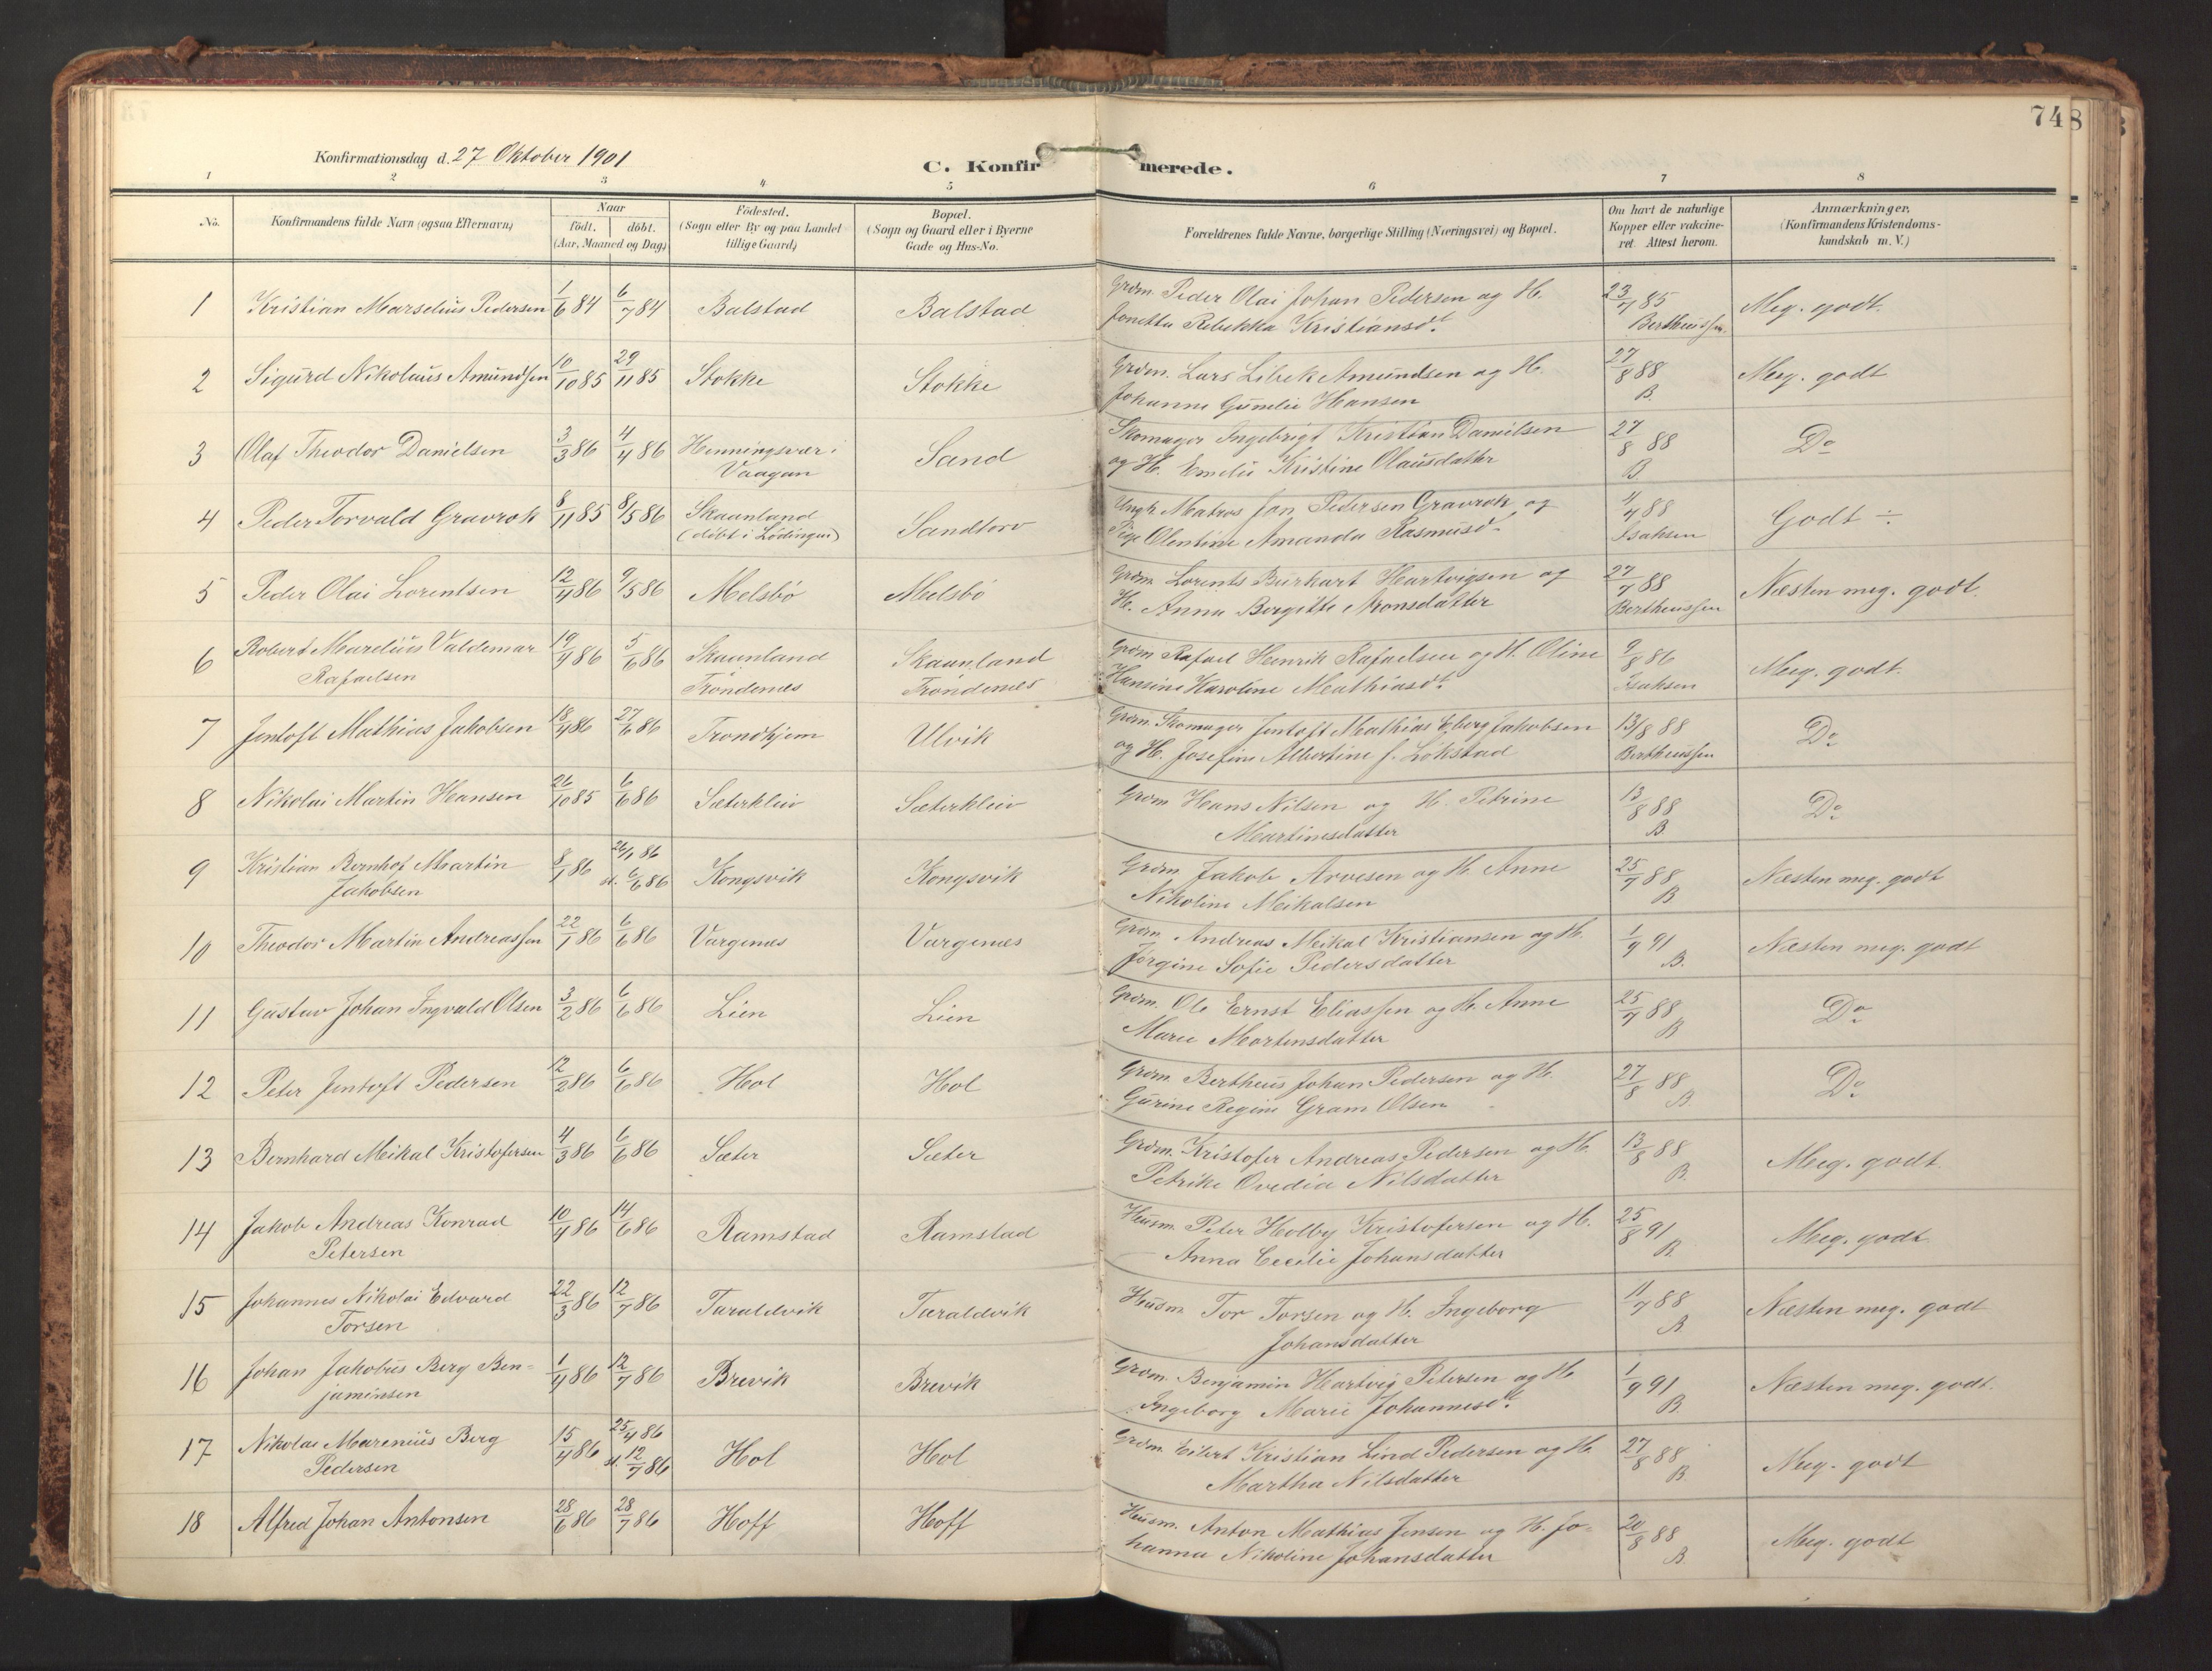 74
8
Konfirmationsdag d. 27 Oktober 1901
C. Konfirmerede.
1 2 3 4 5 6 7 8
No.
Konfirmandens fulde Navn (ogsaa Efternavn)
Naar
födt. döbt.
(Aar, Maaned og Dag)
Födested.
(Sogn eller By og paa Landet
tillige Gaard)
Bopæl.
(Sogn og Gaard eller i Byerne
Gade og Hus-No.
Forældrenes fulde Navne, borgerlige Stilling (Næringsvei) og Bopæl.
Om havt de naturlige
Kopper eller vakcine-
ret. Attest herom.
Anmærkninger,
(Konfirmandens Kristendoms-
kundskab m. V.)
1 Kristian Marselius Pedersen 1/6 84 6/7 84 Balstad Balstad Grdm. Peder Olai Johan Pedersen og H. 23/7 85 Meg. godt.
Jonetta Rebekka Kristiansdt. Bertheussen.
2 Sigurd Nikolaus Amundsen 10/10 85 29/11 85 Stokke Stokke Grdm. Lars Libek Amundsen og H. 27/8 88 Meg. godt
Johanna Gunelie Hansen B.
3 Olaf Theodor Danielsen 3/3 86 4/4 86 Henningsvær i Sand Skomager Ingebrigt Kristian Danielsen 27/8 88 Do
Vaagan og H. Emelie Kristine Olausdatter B.
4 Peder Torvald Gravrok 8/11 85 8/5 86 Skaanland Sandtorv Ungk. Matros Jan Pedersen Gravrok og 4/4 88 Godt ÷
(döbt i Lödingen) Pige Olentine Amanda Rasmusd. Isaksen
5 Peder Olai Lorentsen 12/4 86 9/5 86 Melsbö Melsbö Grdm. Lorents Burkart Hartvigsen og 27/7 88 Næsten meg. godt.
H. Anna Bergitte Aronsdatter Bertheussen
6 Robert Marelius Valdemar 19/4 86 5/6 86 Skaanland Skaanland Grdm Rafael Henrik Rafaelsen og H. Oline 9/8 86 Meg. godt.
Rafaelsen Tröndenæs Tröndenæs Hansine Karoline Mathiasdt. Isaksen
7 Jentoft Mathias Jakobsen 18/4 86 27/6 86 Trondhjem Ulvik Grdm. Skomager Jentoft Mathias Eberg Jakobsen 13/8 88 Do
og H. Josefine Albertine f. Lökstad Bertheussen
8 Nikolai Martin Hansen 26/10 85 6/6 86 Sæterkleiv Sæterkleiv Grdm Hans Nilsen og H. Petrine 13/8 88 Do
Martinesdatter B.
9 Kristian Bernhof Martin 8/1 86 24/1 86 Kongsvik Kongsvik Grdm. Jakob Arvesen og H. Anne 25/7 88 Næsten meg. godt
Jakobsen st. 6/6 86 Nikoline Meikalsen B
10 Theodor Martin Andreassen 22/1 86 6/6 86 Vargenæs Vargenæs Grdm. Andreas Meikal Kristiansen og H. 1/9 91 Næsten meg. godt
Jörgine Sofie Pedersdatter B.
11 Gustav Johan Ingvald Olsen 3/2 86 6/6 86 Lien Lien Grdm. Ole Ernst Eliassen og H. Anne 25/7 88 Do
Marie Mortensdatter B
12 Peter Jentoft Pedersen 12/2 86 6/6 86 Hol Hol Grdm. Bertheus Johan Pedersen og H. 27/8 88 Do
Gurine Regine Gram Olsen B.
13 Bernhard Meikal Kristofersen 4/3 86 6/6 86 Sæter Sæter Grdm. Kristofer Andreas Pedersen og H. 13/8 88 Meg. godt.
Petrike Ovedia Nilsdatter B.
14 Jakob Andreas Konrad 10/4 86 14/6 86 Ramstad Ramstad Husm. Peter Holby Kristofersen og H. 25/8 91 Meg. godt
Petersen Anna Cecilie Johansdatter B.
15 Johannes Nikolai Edvard 22/3 86 12/7 86 Taraldvik Taraldvik Husm. Tor Torsen og H. Ingeborg 11/7 88 Næsten meg. godt
Torsen Johansdatter B.
16 Johan Jakobus Berg Ben= 1/4 86 12/7 86 Brevik Brevik Grdm. Benjamin Hartvig Petersen og H 1/9 91 Næsten meg. godt.
jaminsen Ingeborg Marie Johannesdt. B.
17 Nikolai Marenius Berg 15/4 86 25/4 86 Hol Hol Grdm. Eilert Kristian Lind Pedersen og H. 27/8 88 Meg. godt
Pedersen st. 12/7 86 Martha Nilsdatter B.
18 Alfred Johan Antonsen 28/6 86 28/7 86 Hoff Hoff Husm. Anton Mathias Jensen og H. Jo= 20/8 88 Meg. godt
hanna Nikoline Johansdatter B.